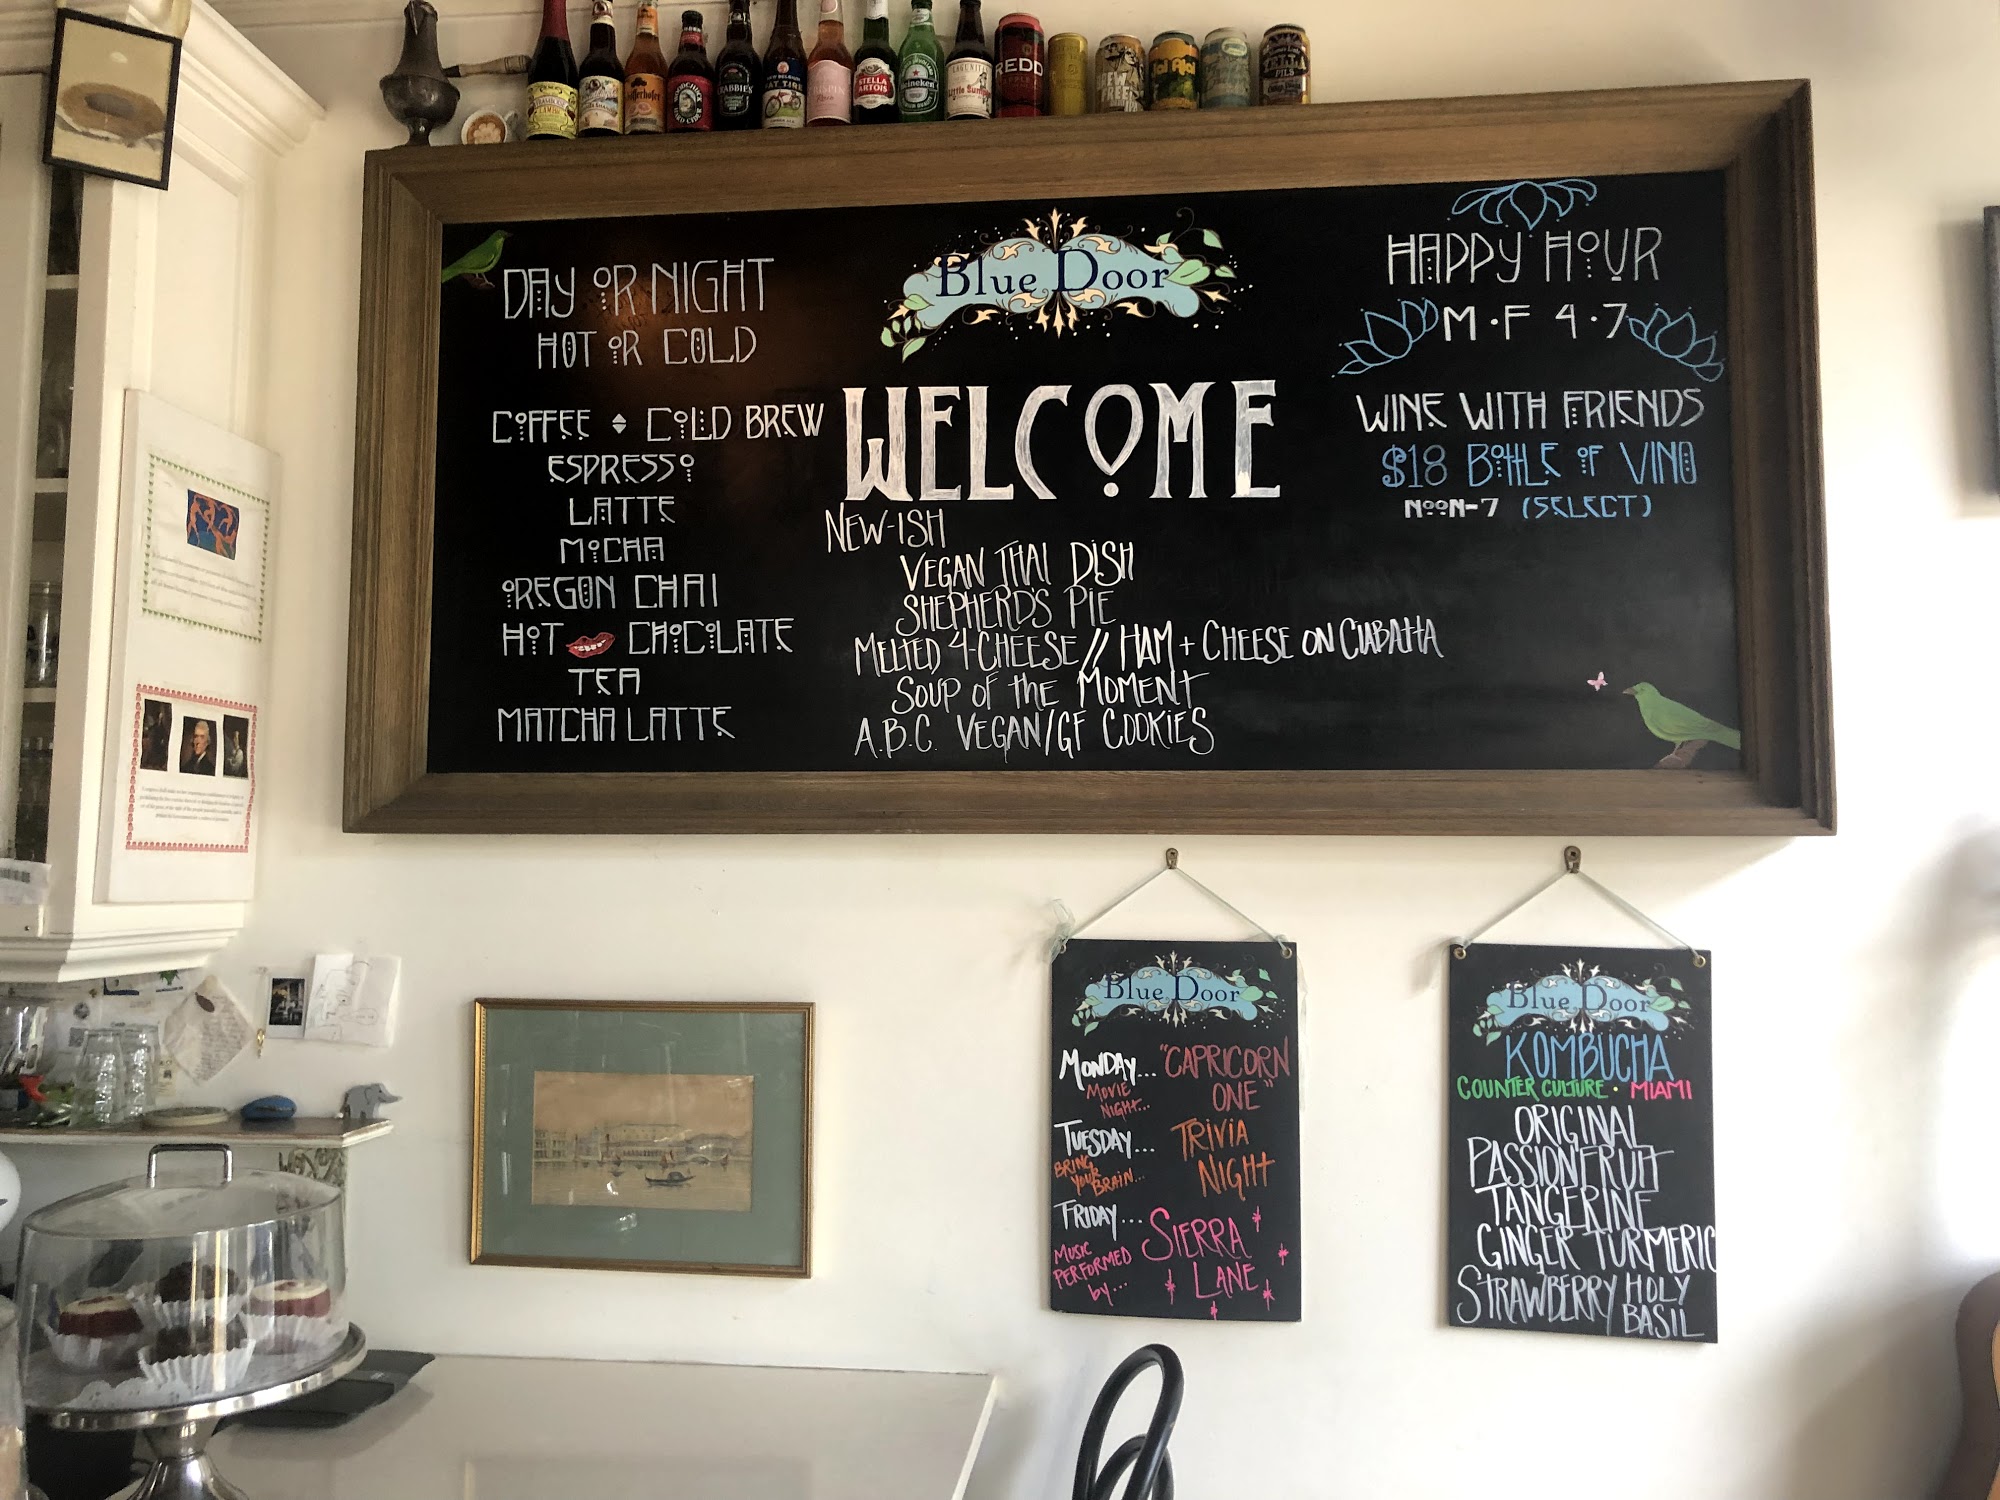 CRABBIE'S
FAT TIRE
CRISPIN
STELLA
ARTOIS
Heineken
LAGUNITAS
Little Sumpin
REDD
DAY OR NIGHT
HOT OR COLD
COFFEE COLD BREW
ESPRESSO
LATTE
MOCHA
OREGON CHAI
HOT CHOCOLATE
TEA
MATCHA LATTE
Blue Door
WELCOME
NEW-ISH
VEGAN THAI DISH
SHEPHERD'S PIE
MELTED 4-CHEESE // HAM + CHEESE ON CIABATTA
SOUP OF THE MOMENT
A.B.C. VEGAN/GF COOKIES
HAPPY HOUR
M·F 4·7
WINE WITH FRIENDS
$18 BOTTLE OF VINO
NOON-7 (SELECT)
Blue Door
MONDAY... "CAPRICORN
MOVIE ONE"
NIGHT...
TUESDAY... TRIVIA
BRING NIGHT
YOUR
BRAIN...
FRIDAY... SIERRA
MUSIC LANE
PERFORMED
by...
Blue Door
KOMBUCHA
COUNTER CULTURE · MIAMI
ORIGINAL
PASSIONFRUIT
TANGERINE
GINGER TURMERIC
STRAWBERRY HOLY
BASIL